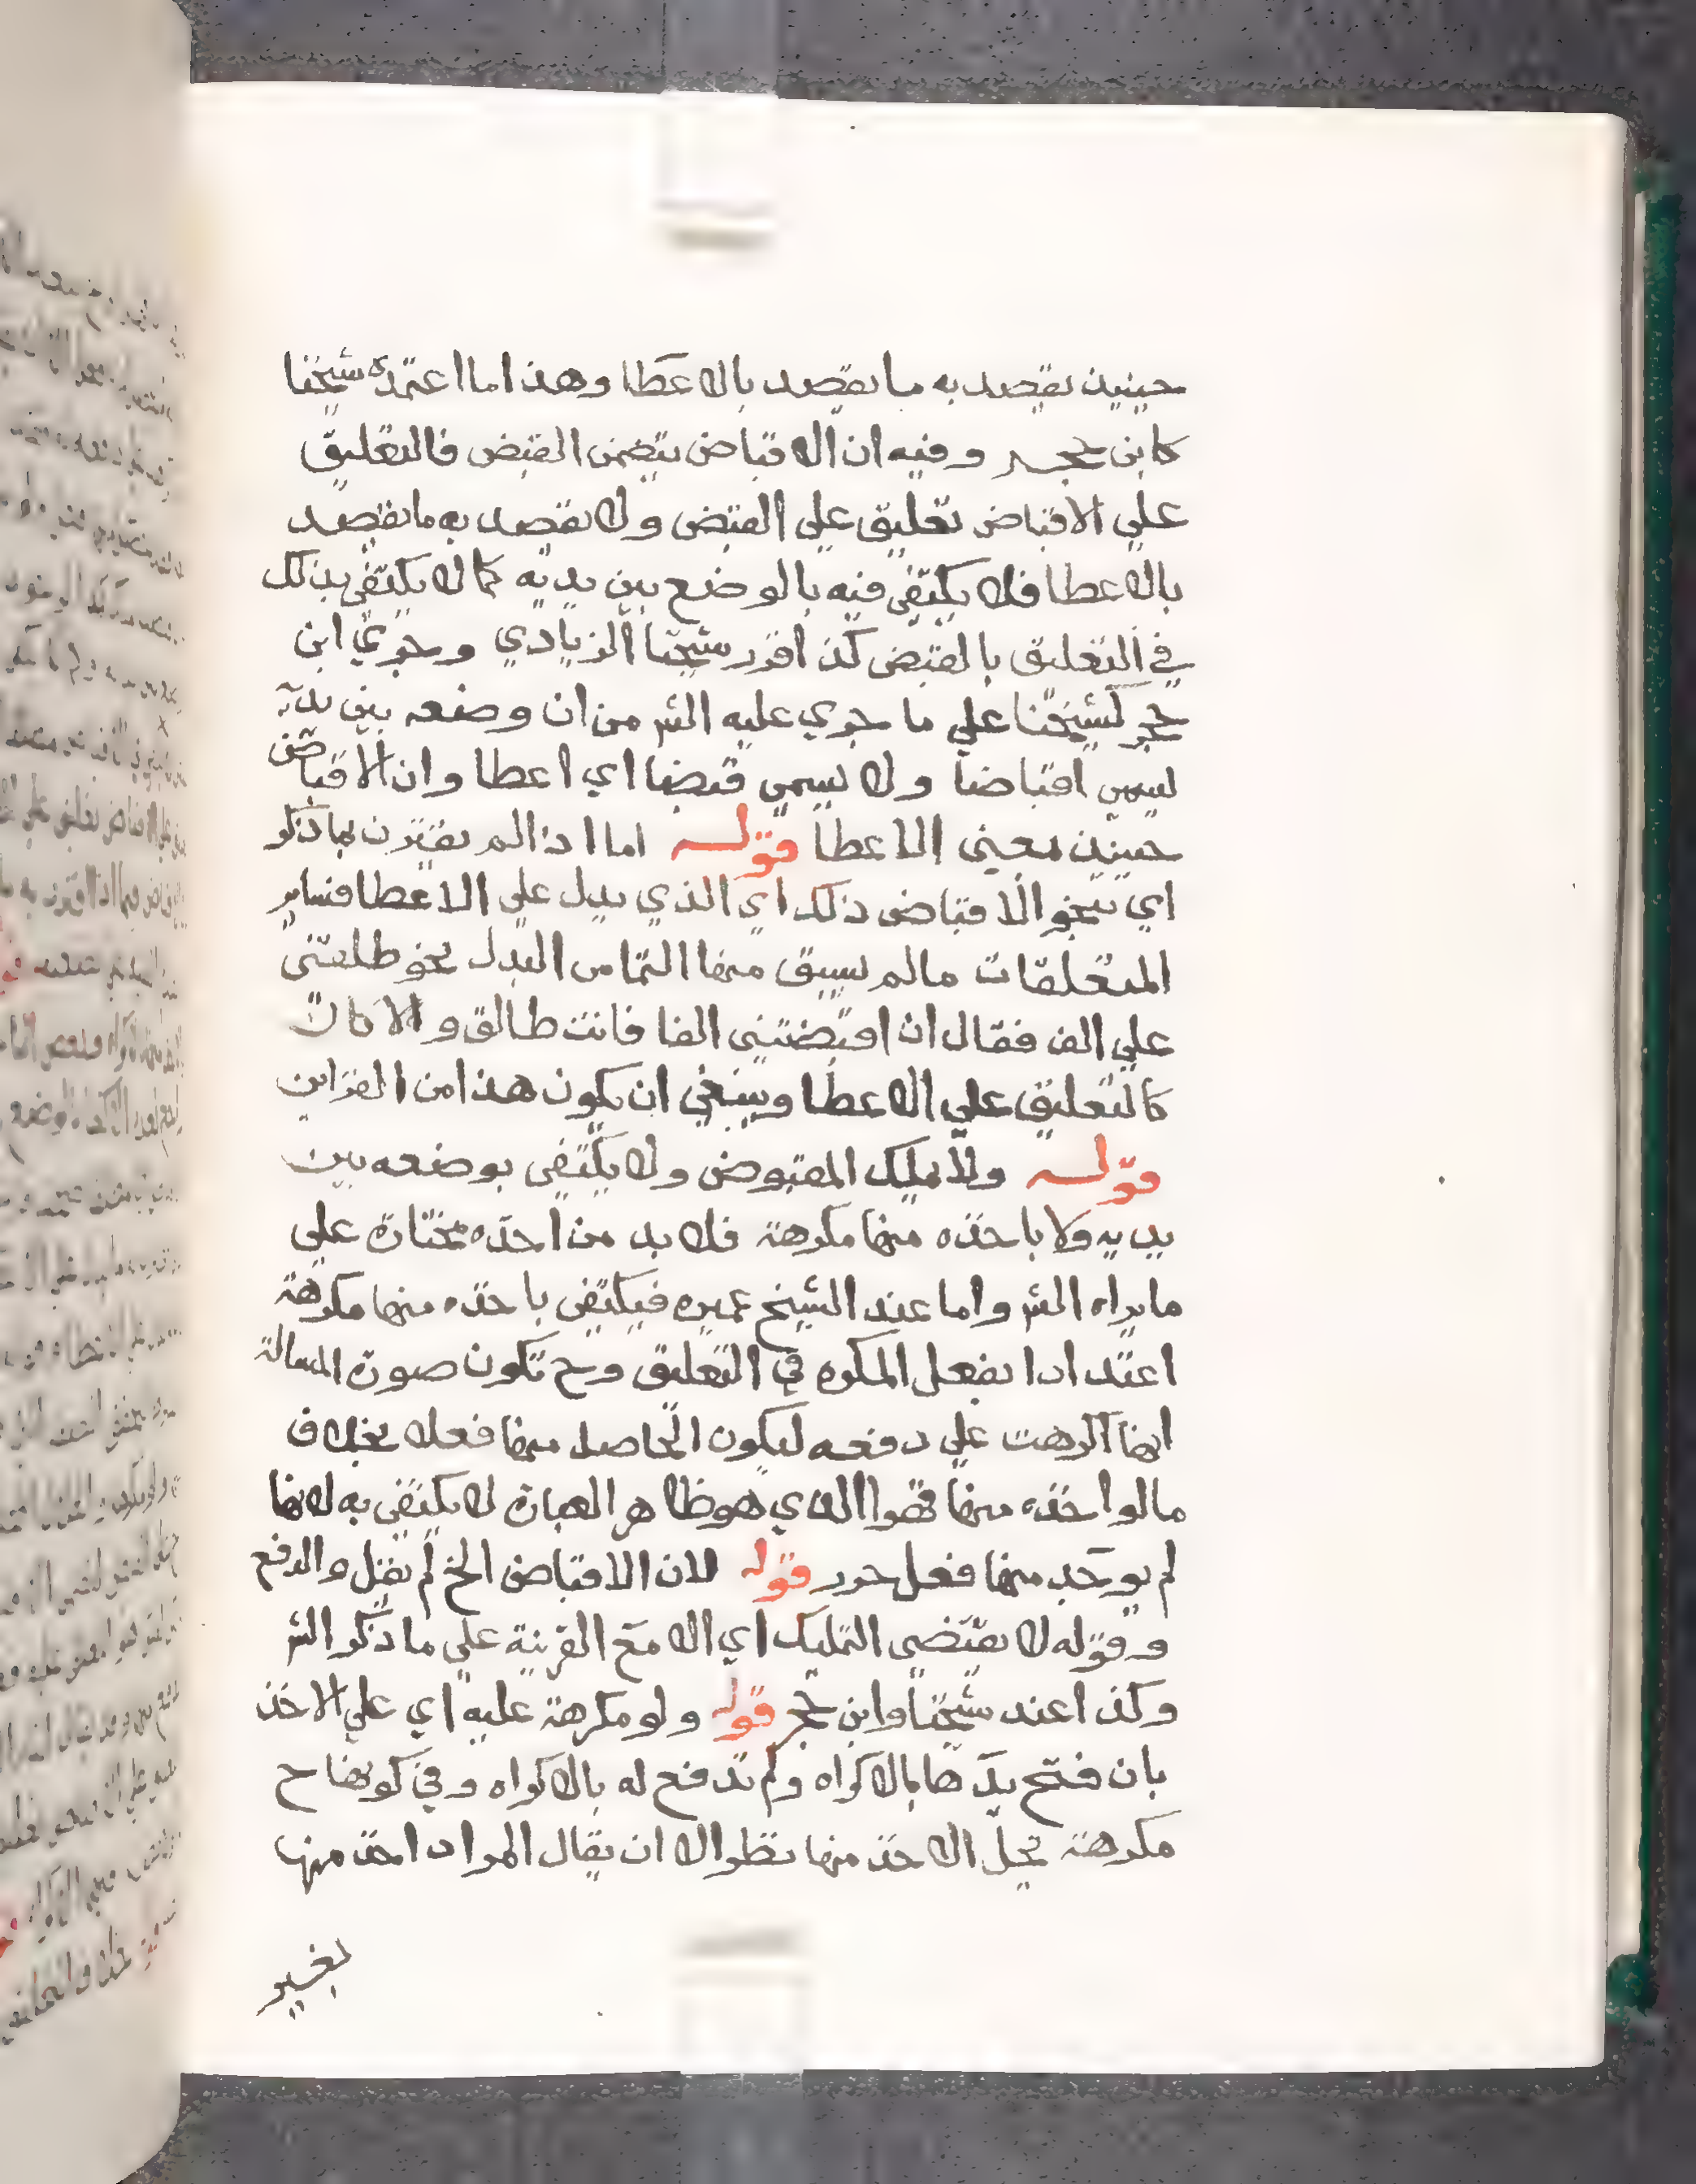 حينيذ يقصد به ما يقصد بالاعطا وهذا ما اعتمده شيخنا
كابن حجر وفيه ان الاقباض يتضمن القبض فالتعليق
علي الاقباض تعليق علي القبض ولا يقصد به ما يقصد
بالاعطا فلا يكتفي فيه بالوضع بين يديه كما لا يكتفي بذلك
في التعليق بالقبض كذا قرر شيخنا الزيادي وجري ابن
حجر كشيخنا علي ما جري عليه الش من ان وضعه بين يديه
يسمي اقباضا ولا يسمي قبضا اي اعطا وان الاقباض
حينيذ بمعني الاعطا قوله اما اذا لم يقترن بما ذكر
اي بنحو الاقباض ذلك اي الذي يدل علي الاعطا فساير
المتعلقات ما لم يسبق منها التماس البدل نحو طلقتني
علي الف فقال ان اقبضتني الفا فانت طالق والا كان
كالتعليق علي الاعطا وينبغي ان يكون هذا من القراين
قوله ولا يملك المقبوض ولا يكتفي بوضعه بين
يديه ولا باخذه منها مكرهة فلا بد من اخذه مختارة علي
ما يراه الش واما عند الشيخ عميره فيكتفي باخذه منها مكرهة
اعتدادا بفعل المكره في التعليق وح تكون صورة المسالة
انها اكرهت علي دفعه ليكون الحاصل منها فعلا بخلاف
ما لو اخذه منها قهرا الذي هو ظاهر العبارة لا يكتفي به لانها
لم يوجد منها فعل حرر قوله لان الاقباض الخ لم يقل والدفع
وقوله لا يقتضي التمليك اي الا مع القرينة علي ما ذكر الش
وكذا عند شيخنا وابن حجر قوله ولو مكرهة عليه اي علي الاخذ
بان فتح يدها بالاكراه ولم تدفع له بالاكراه وفي كونها ح
مكرهة بمحل الاخذ منها نظر الا ان يقال المراد اخذ منها
بغير